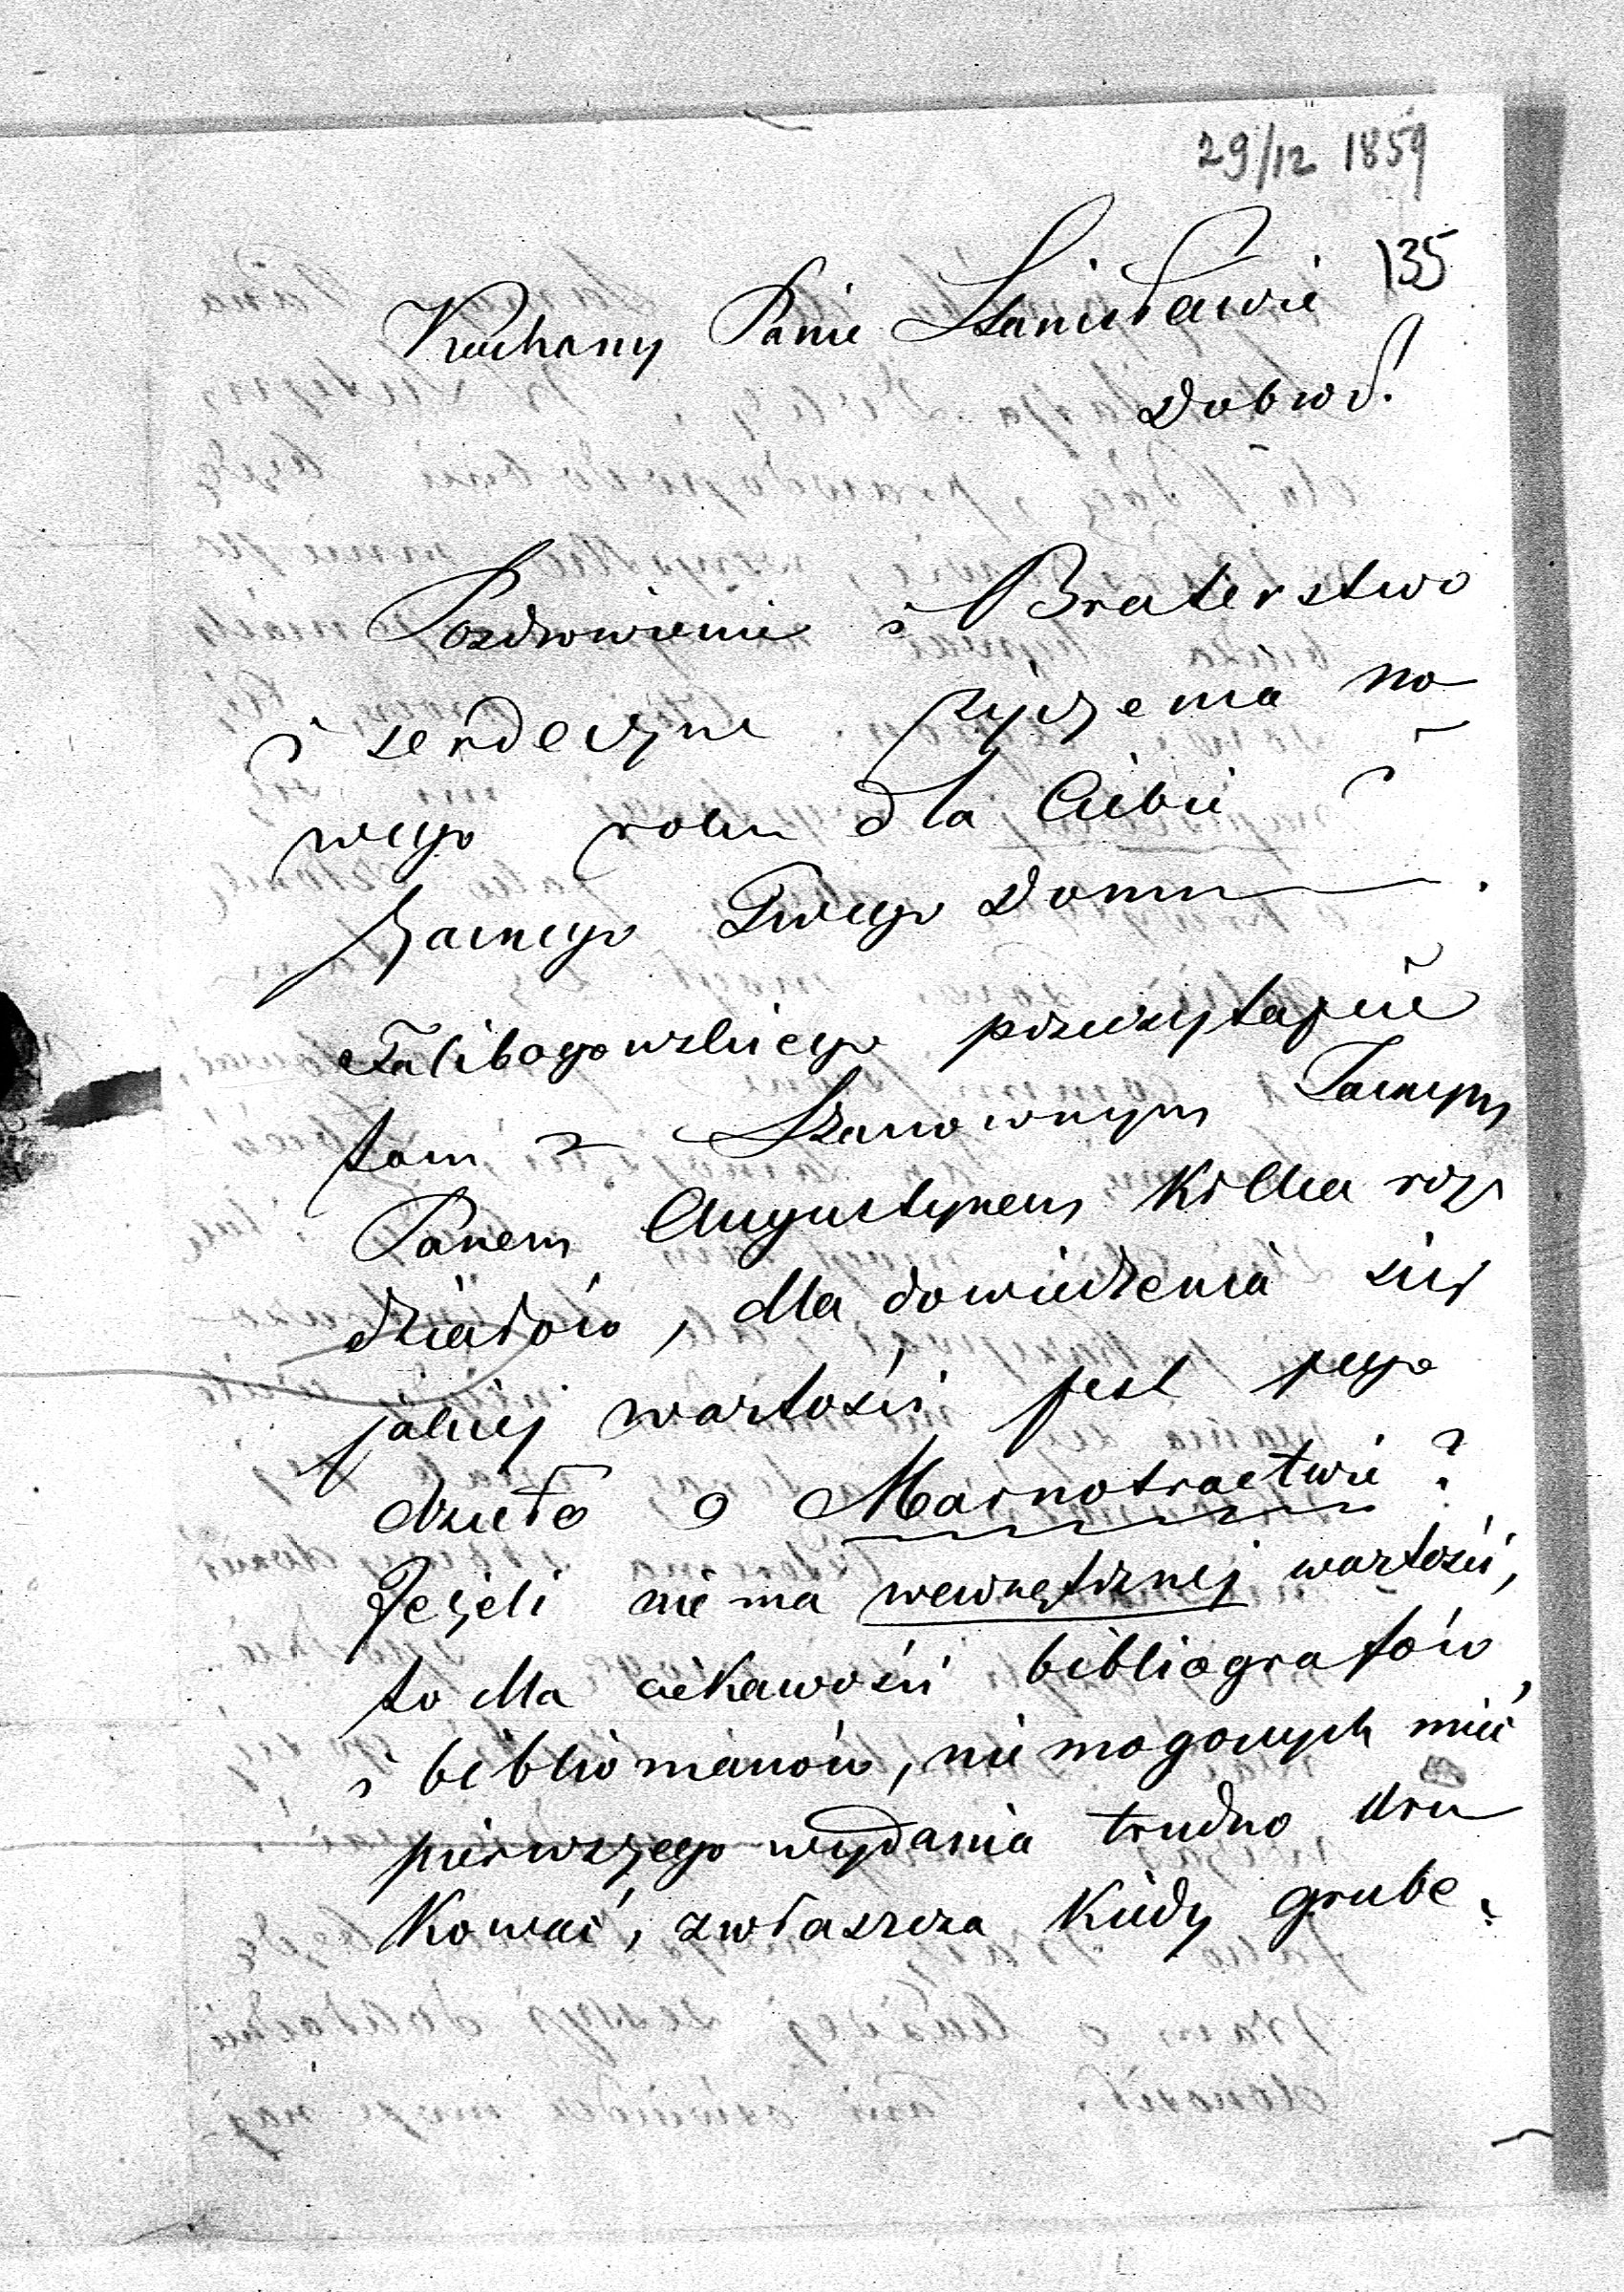 29/12 1859
135
Kochany Panie Stanisławie
Dobrod.
Pozdrowienie i Braterstwo
i serdeczne życzenia no
wego roku dla Ciebie i
Zacnego Twego Domu.
Zalibogowskiego przeczytajcie
tam z Szanownym Zacnym
Panem Augustynem kilka roz
działów, dla dowiedzenia się
jakiej wartości jest jego
dzieło o Marnotractwie?
Jeżeli nie ma wewnętrznej wartości,
to dla ciekawości bibliografów
i bibliomanów, nie mogących mieć
pierwszego wydania trudno dru
kować, zwłaszcza kiedy grube.